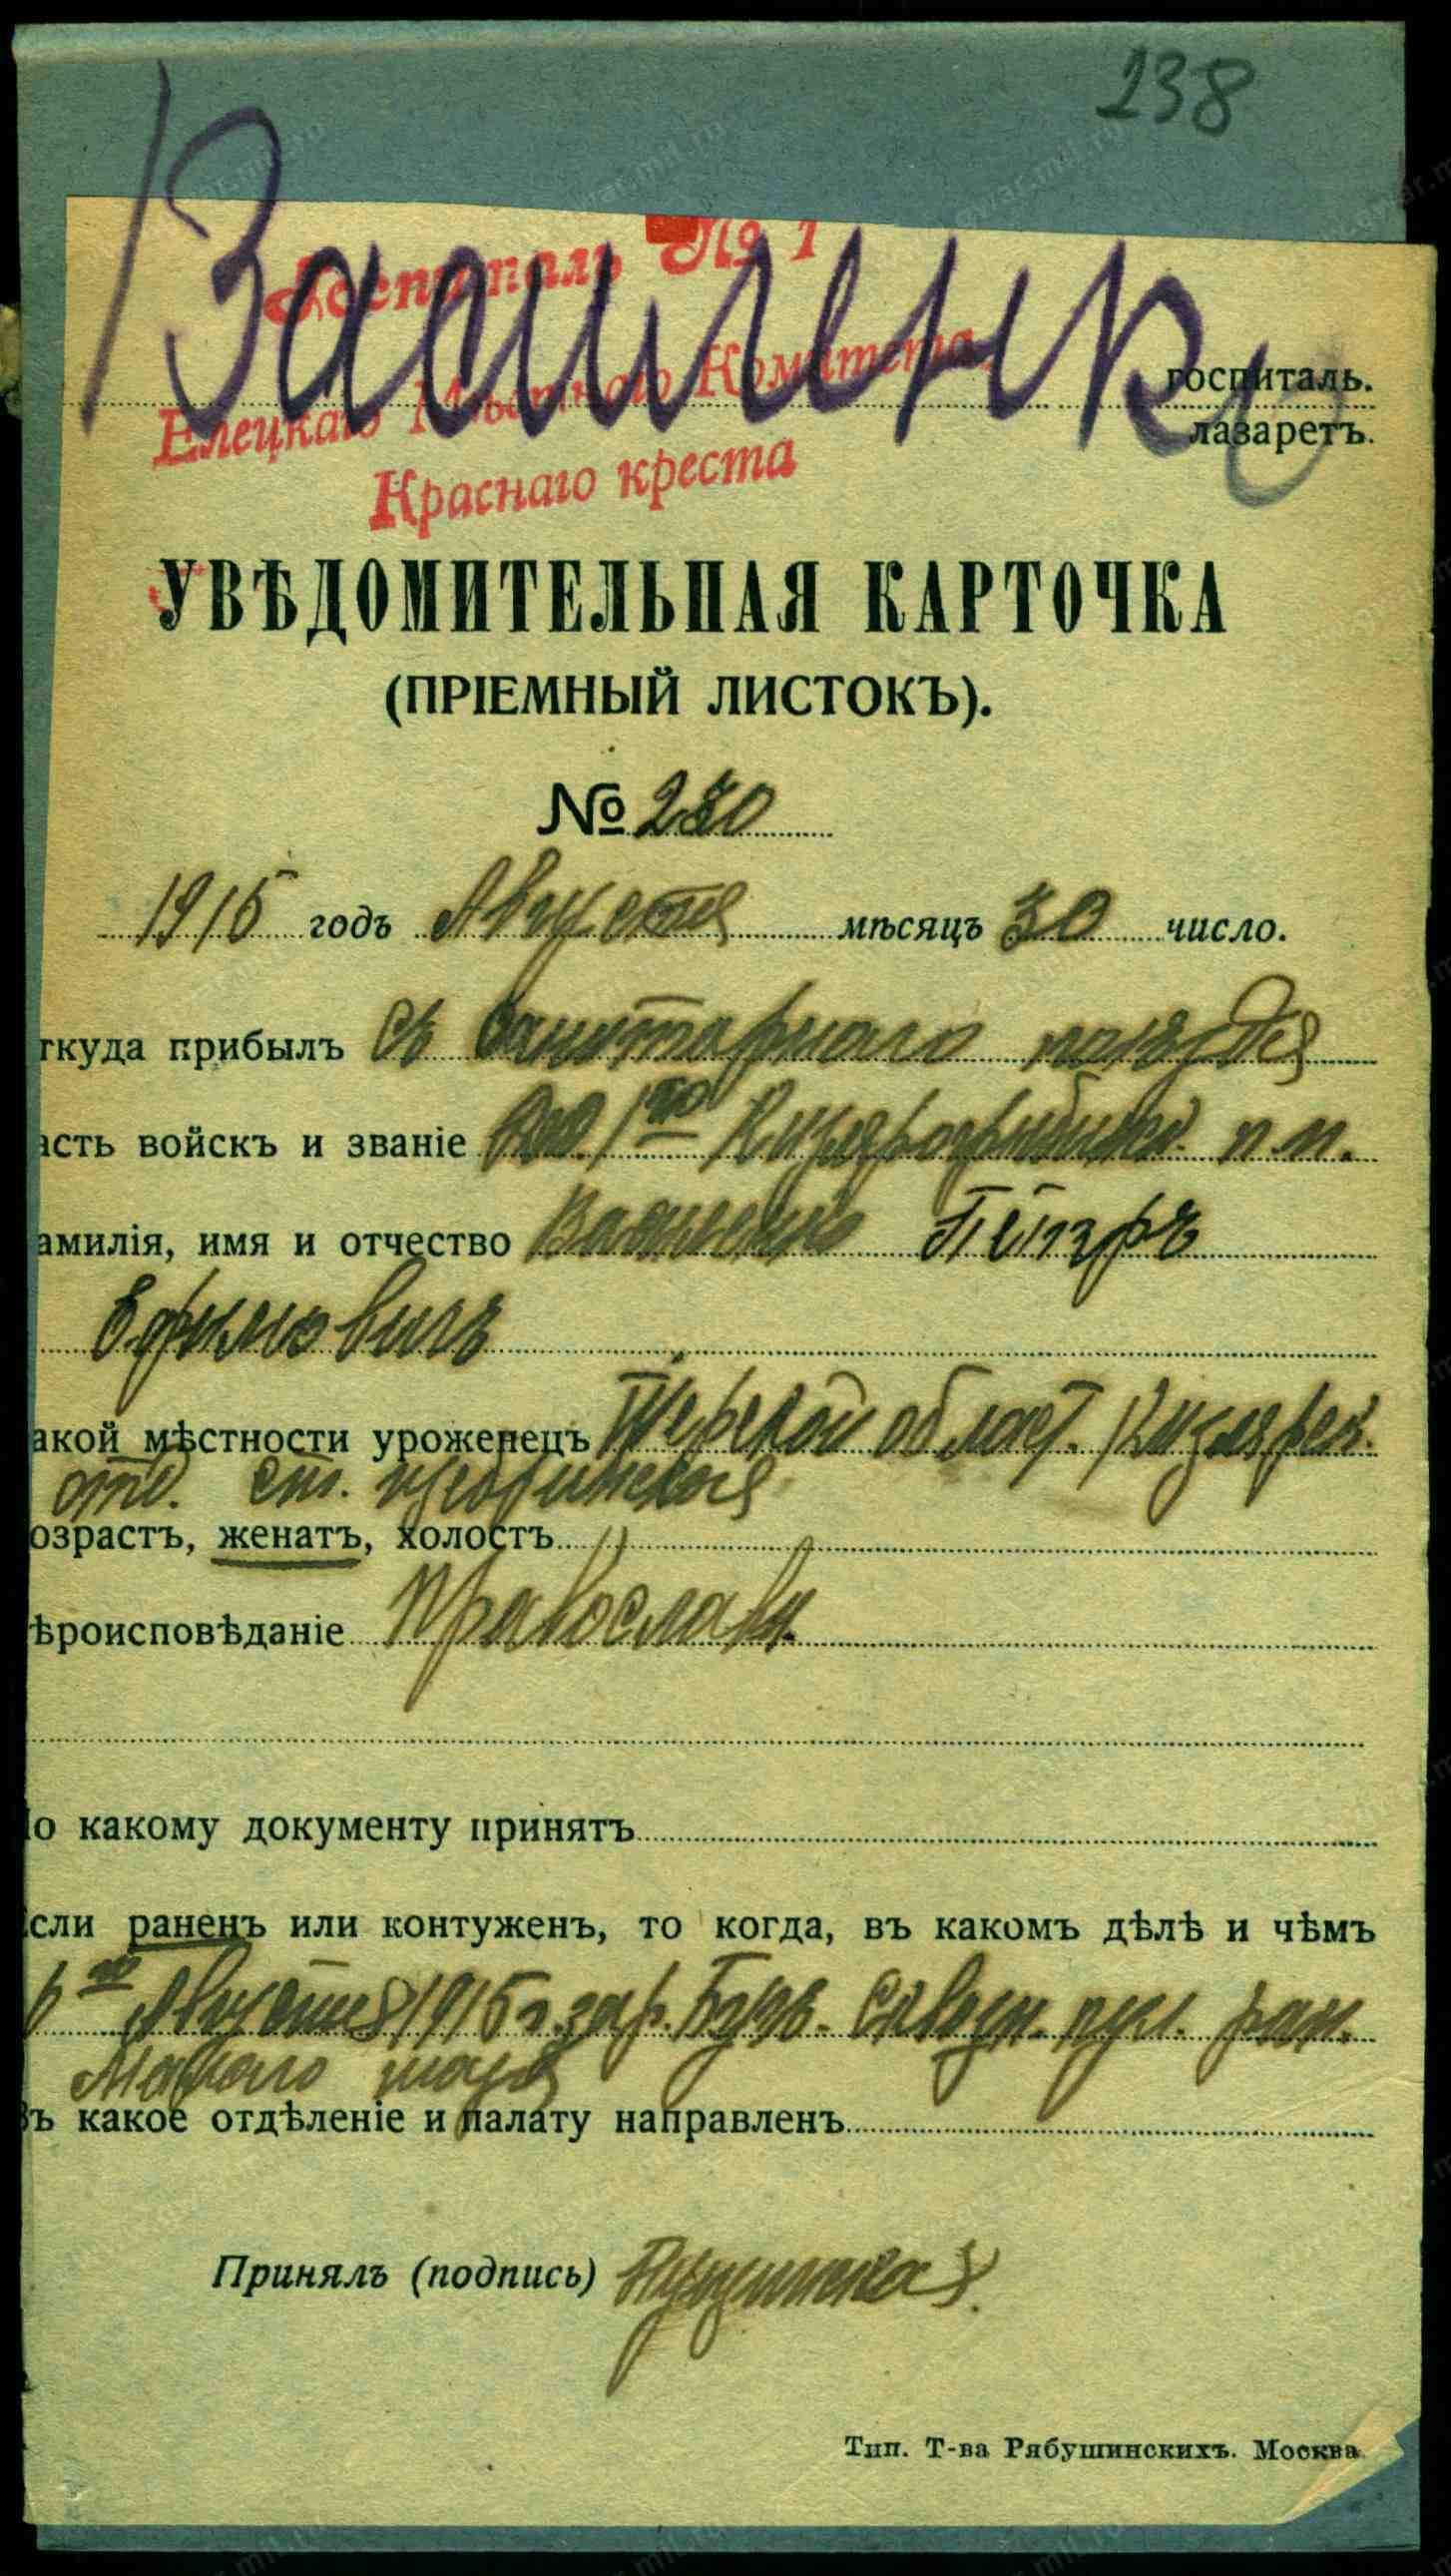 138
Васиченко
Госпиталь № 1
Елецкаго Мѣстнаго Комитета
Краснаго креста
госпиталь.
лазаретъ.
УВѢДОМИТЕЛЬНАЯ КАРТОЧКА
(ПРІЕМНЫЙ ЛИСТОКЪ).
№ 280
1915 годъ Августа мѣсяцъ 30 число.
ткуда прибылъ Съ Санитарного поѣзда
асть войскъ и званіе 1го п.
амилія, имя и отчество Петръ
Ефимовичъ
акой мѣстности уроженецъ Терской област. Кизлярск.
отд. ст.
озрастъ, женатъ, холостъ
ѣроисповѣданіе Православн.
о какому документу принятъ
сли раненъ или контуженъ, то когда, въ какомъ дѣлѣ и чѣмъ
6го Августа 1915 г. Сквозн. пул. ран.
ъ какое отдѣленіе и палату направленъ
Принялъ (подпись)
Тип. Т-ва Рябушинскихъ. Москва